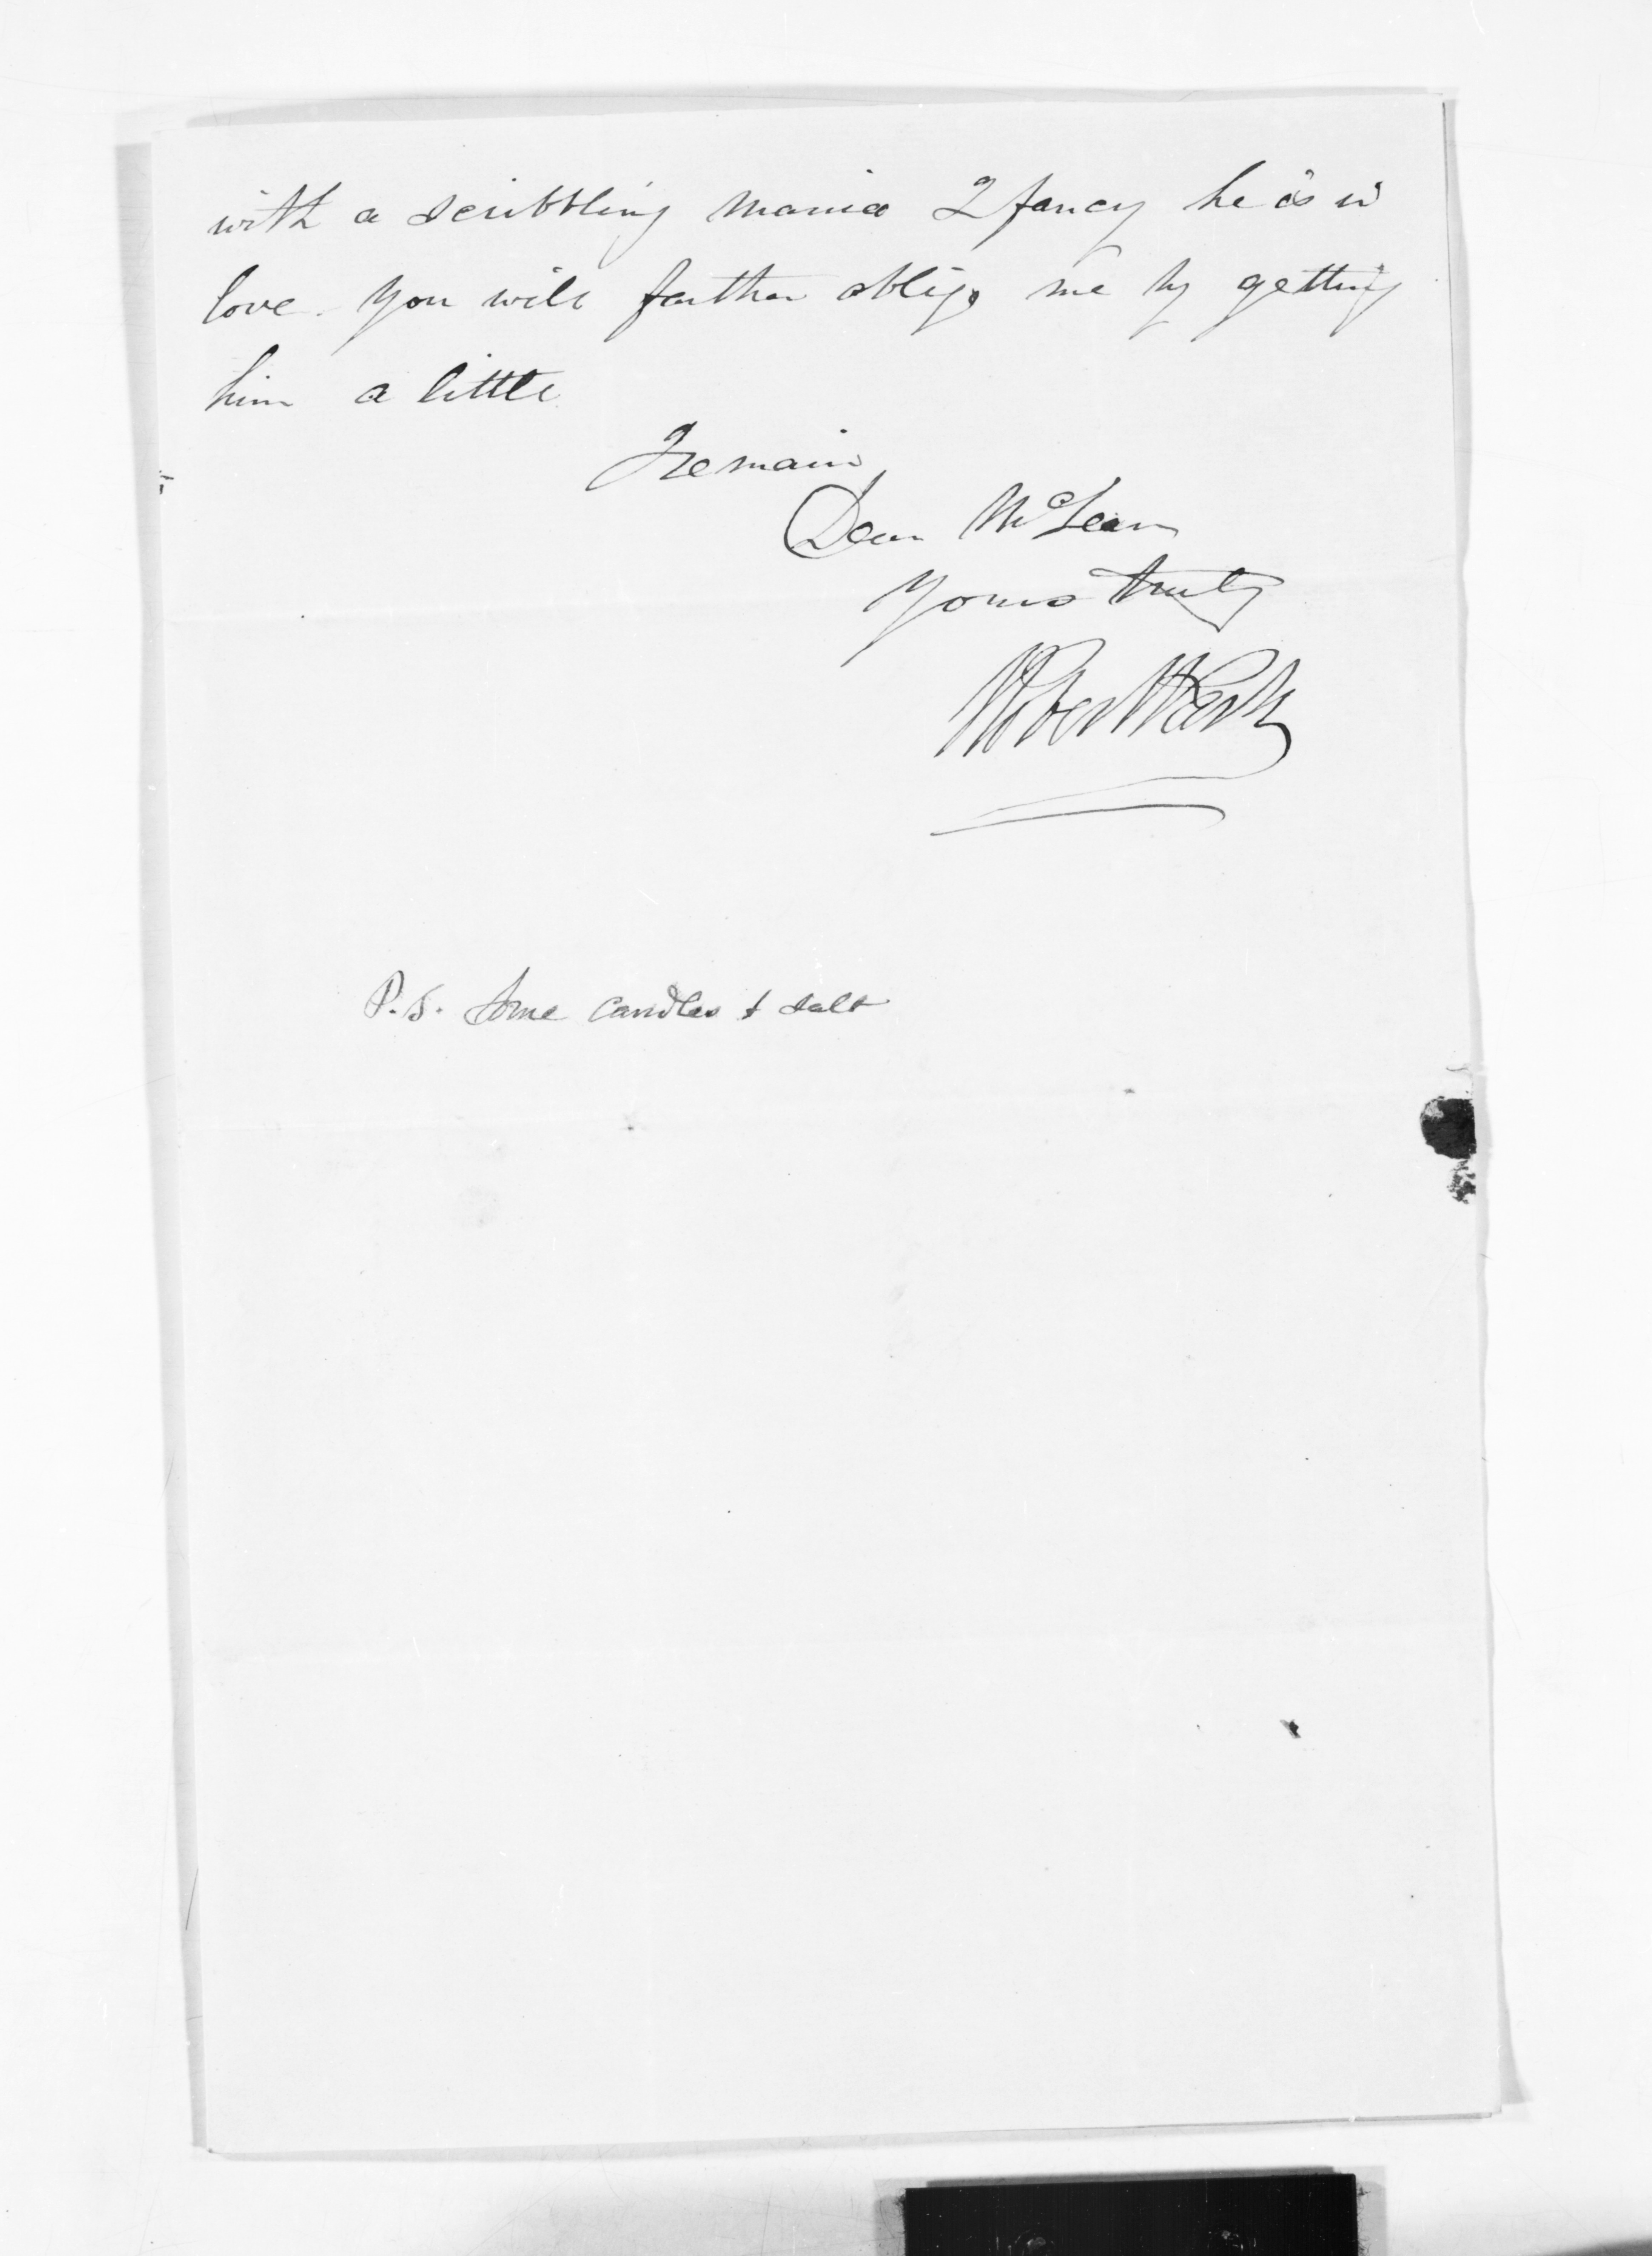 with a scribbling mania I fancy he is in
love. You will farther oblige me by getting
him a little
I remain
Dear McLean
Yours truly
Robert Park
P.S. Some candles & salt